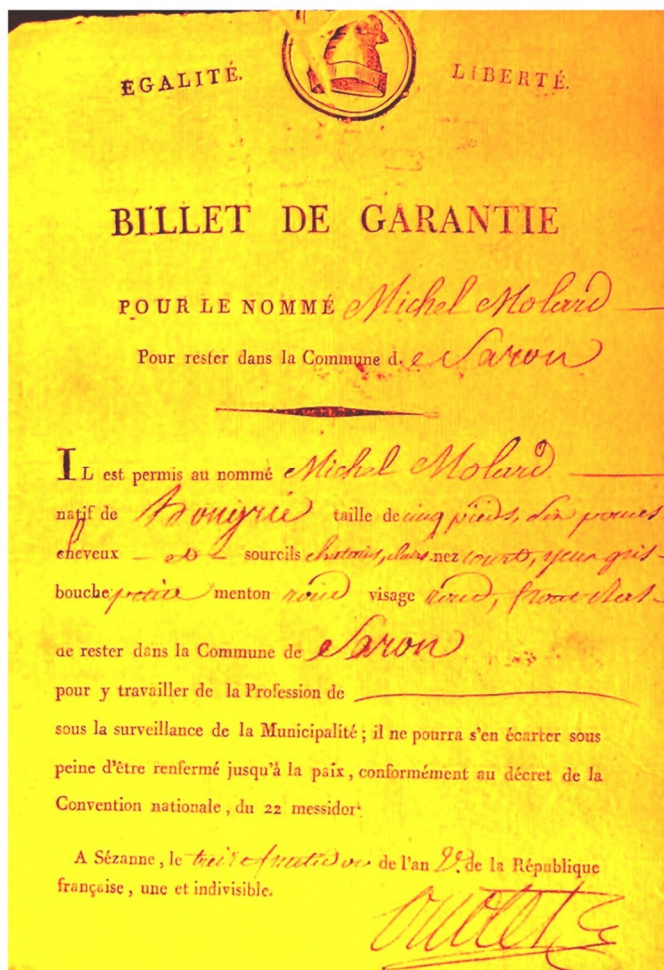 EGALITÉ. LIBERTÉ.
BILLET DE GARANTIE
POUR LE NOMMÉ Michel Molard
Pour rester dans la Commune d. e Saron
IL est permis au nommé Michel Molard
natif de hongrie taille de cinq pieds, dix pouces
cheveux et sourcils chatains, clairs nez court, yeux gris
bouche petite menton rond visage rond, front
de rester dans la Commune de Saron
pour y travailler de la Profession de
sous la surveillance de la Municipalité ; il ne pourra s'en écarter sous
peine d'être renfermé jusqu'à la paix, conformément au décret de la
Convention nationale, du 22 messidor.
A Sézanne, le treize fructidor de l'an 2e. de la République
française, une et indivisible.